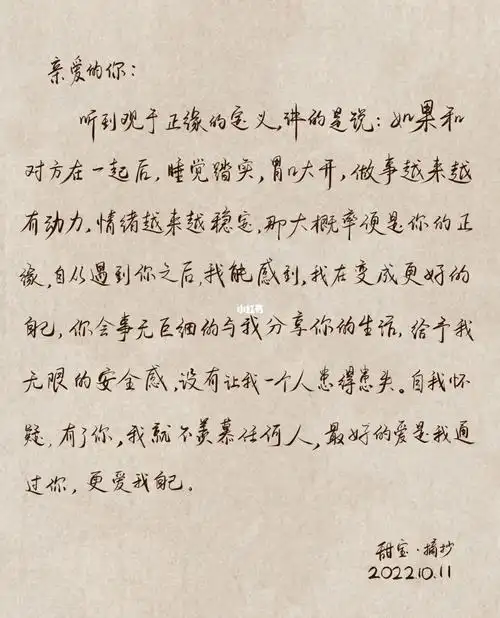 亲爱的你:
听到观于正缘的定义,讲的是说:如果和
对方在一起后,睡觉踏实,胃口大开,做事越来越
有动力,情绪越来越稳定,那大概率便是你的正
缘,自从遇到你之后,我能感到,我在变成更好的
自己,你会事无巨细的与我分享你的生活,给予我
无限的安全感,没有让我一个人患得患失。自我怀
疑,有了你,我就不羡慕任何人,最好的爱是我通
过你,更爱我自己。
小红书
甜宝·摘抄
2022.10.11